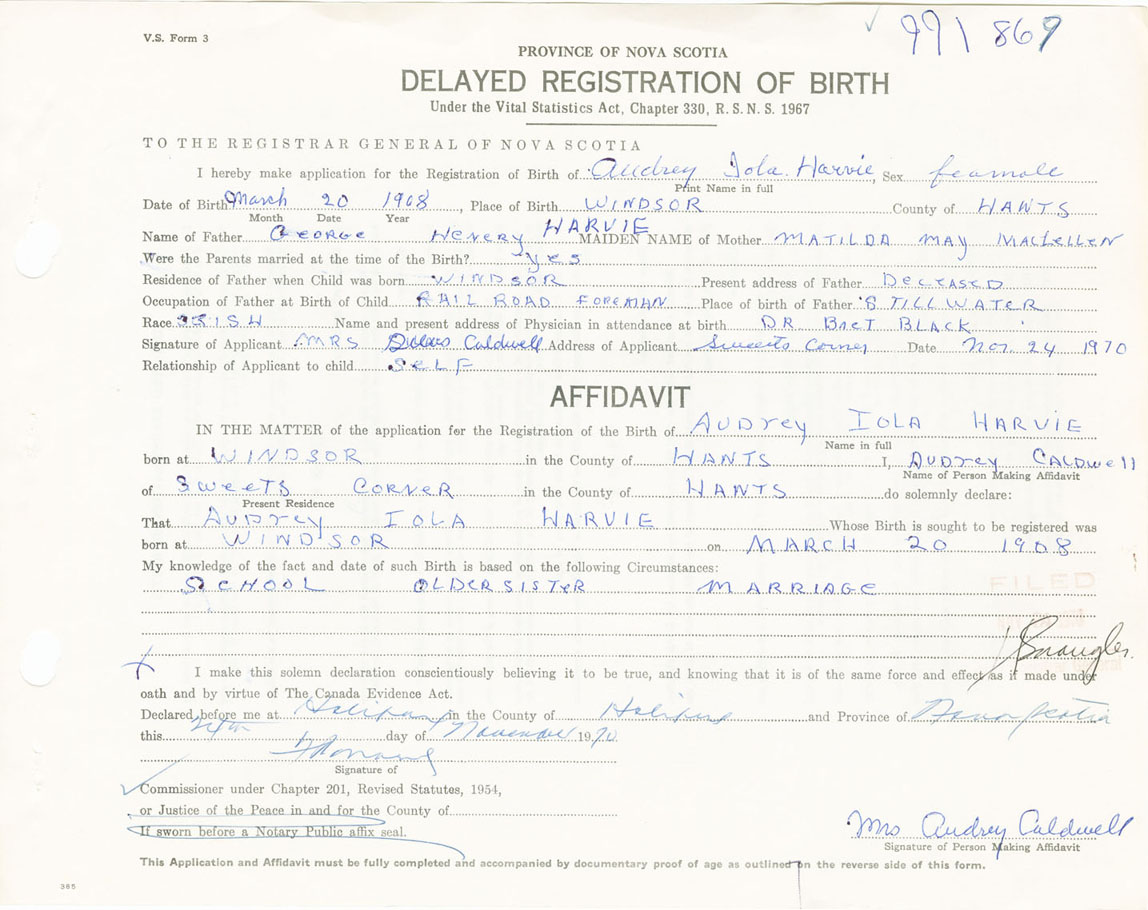 V.S. Form 3
991 869
PROVINCE OF NOVA SCOTIA
DELAYED REGISTRATION OF BIRTH
Under the Vital Statistics Act, Chapter 330, R.S.N.S. 1967
TO THE REGISTRAR GENERAL OF NOVA SCOTIA
I hereby make application for the Registration of Birth of Audrey Iola Harvie, Sex feamale
Print Name in full
Date of Birth March 20 1908, Place of Birth WINDSOR County of HANTS
Month Date Year
Name of Father GEORGE HENERY HARVIE MAIDEN NAME of Mother MATILDA MAY MACLELLEN
Were the Parents married at the time of the Birth? yes
Residence of Father when Child was born WINDSOR Present address of Father DECEASED
Occupation of Father at Birth of Child RAIL ROAD FOREMAN Place of birth of Father STILL WATER
Race Name and present address of Physician in attendance at birth DR BLACK
Signature of Applicant MRS Caldwell Address of Applicant Sweets Corner Date Nov. 24 1970
Relationship of Applicant to child SELF
AFFIDAVIT
IN THE MATTER of the application for the Registration of the Birth of AUDrey IOLA HARVIE
Name in full
born at WINDSOR in the County of HANTS I, AUDrey CALDWell
Name of Person Making Affidavit
of SweetS CORNER in the County of HANTS do solemnly declare:
Present Residence
That AUDrey IOLA HARVIE Whose Birth is sought to be registered was
born at WINDSOR on MARCH 20 1908
My knowledge of the fact and date of such Birth is based on the following Circumstances:
SCHOOL OLDER SISTER MARRIAGE
FILED
I make this solemn declaration conscientiously believing it to be true, and knowing that it is of the same force and effect as if made under
oath and by virtue of The Canada Evidence Act.
Declared before me at Halifax in the County of Halifax and Province of Nova Scotia
this 24th day of November 1970
Signature of
Commissioner under Chapter 201, Revised Statutes, 1954,
or Justice of the Peace in and for the County of
If sworn before a Notary Public affix seal.
Mrs Audrey Caldwell
Signature of Person Making Affidavit
This Application and Affidavit must be fully completed and accompanied by documentary proof of age as outlined on the reverse side of this form.
385